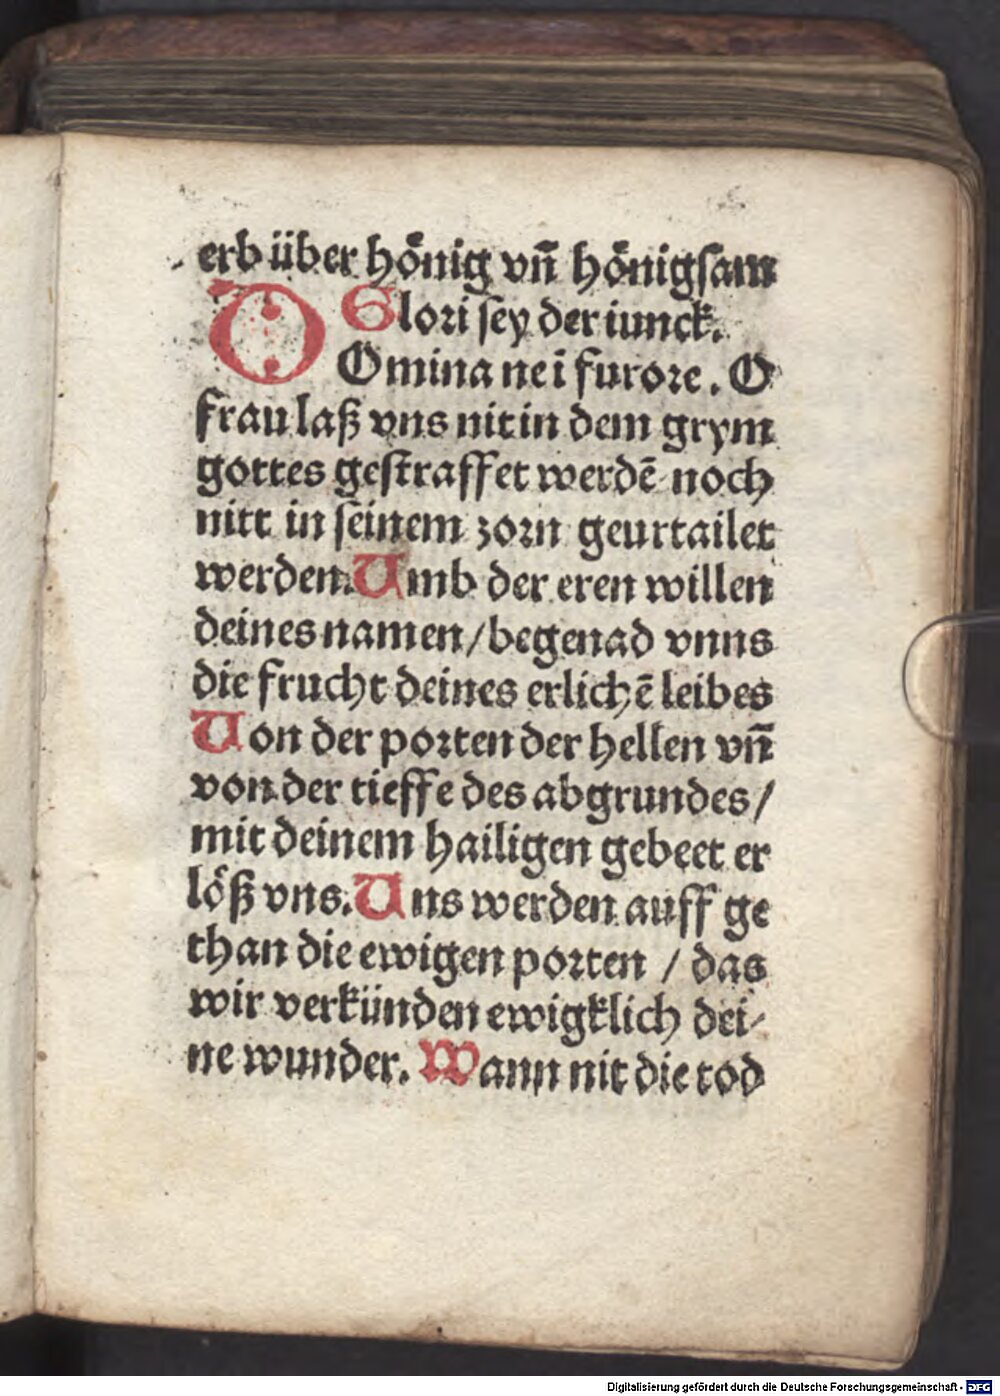 erb über hönig vñ hönigsam
Glori sey der iunck.
O Omina ne ī furore. O
frau laß vns nit in dem grym
gottes gestraffet werdē noch
nitt in seinem zorn geurtailet
werden. Umb der eren willen
deines namen / begenad vnns
die frucht deines erlichē leibes
Von der porten der hellen vñ
von der tieffe des abgrundes /
mit deinem hailigen gebeet er
löß vns. Uns werden auff ge
than die ewigen porten / das
wir verkünden ewigklich dei-
ne wunder. Wann nit die tod
Digitalisierung gefördert durch die Deutsche Forschungsgemeinschaft - DFG